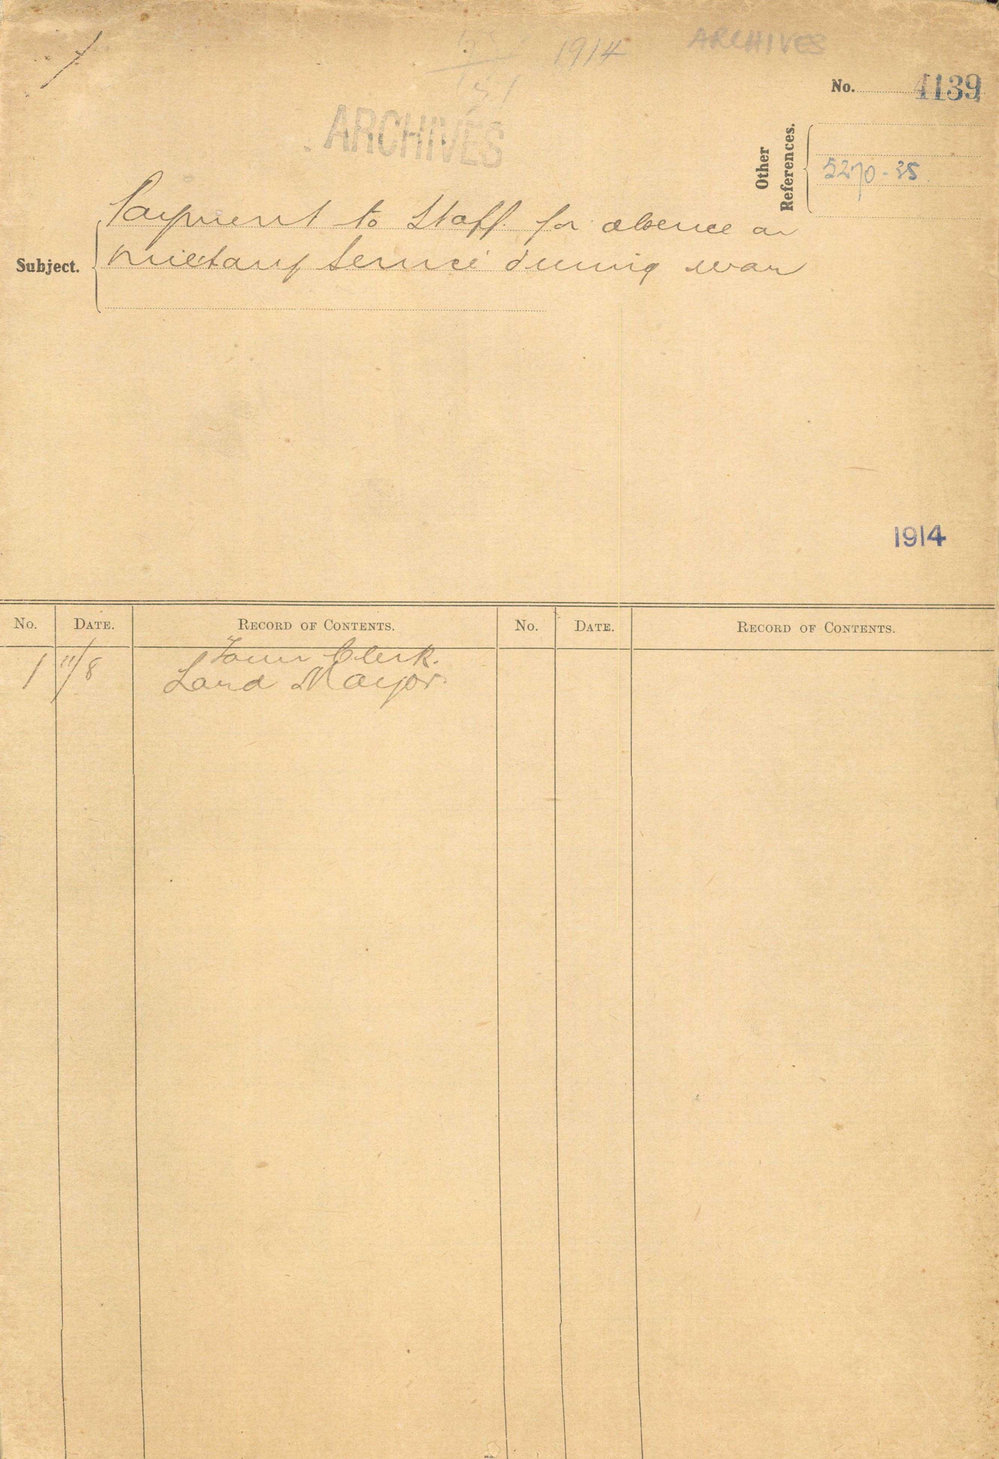 1914
ARCHIVES
No. 4139
ARCHIVES
Other References.
5270-35
Payment to Staff for absence on
Subject. military Service during war
1914
No. DATE. RECORD OF CONTENTS. No. DATE. RECORD OF CONTENTS.
Town Clerk.
1 11/8 Lord Mayor.